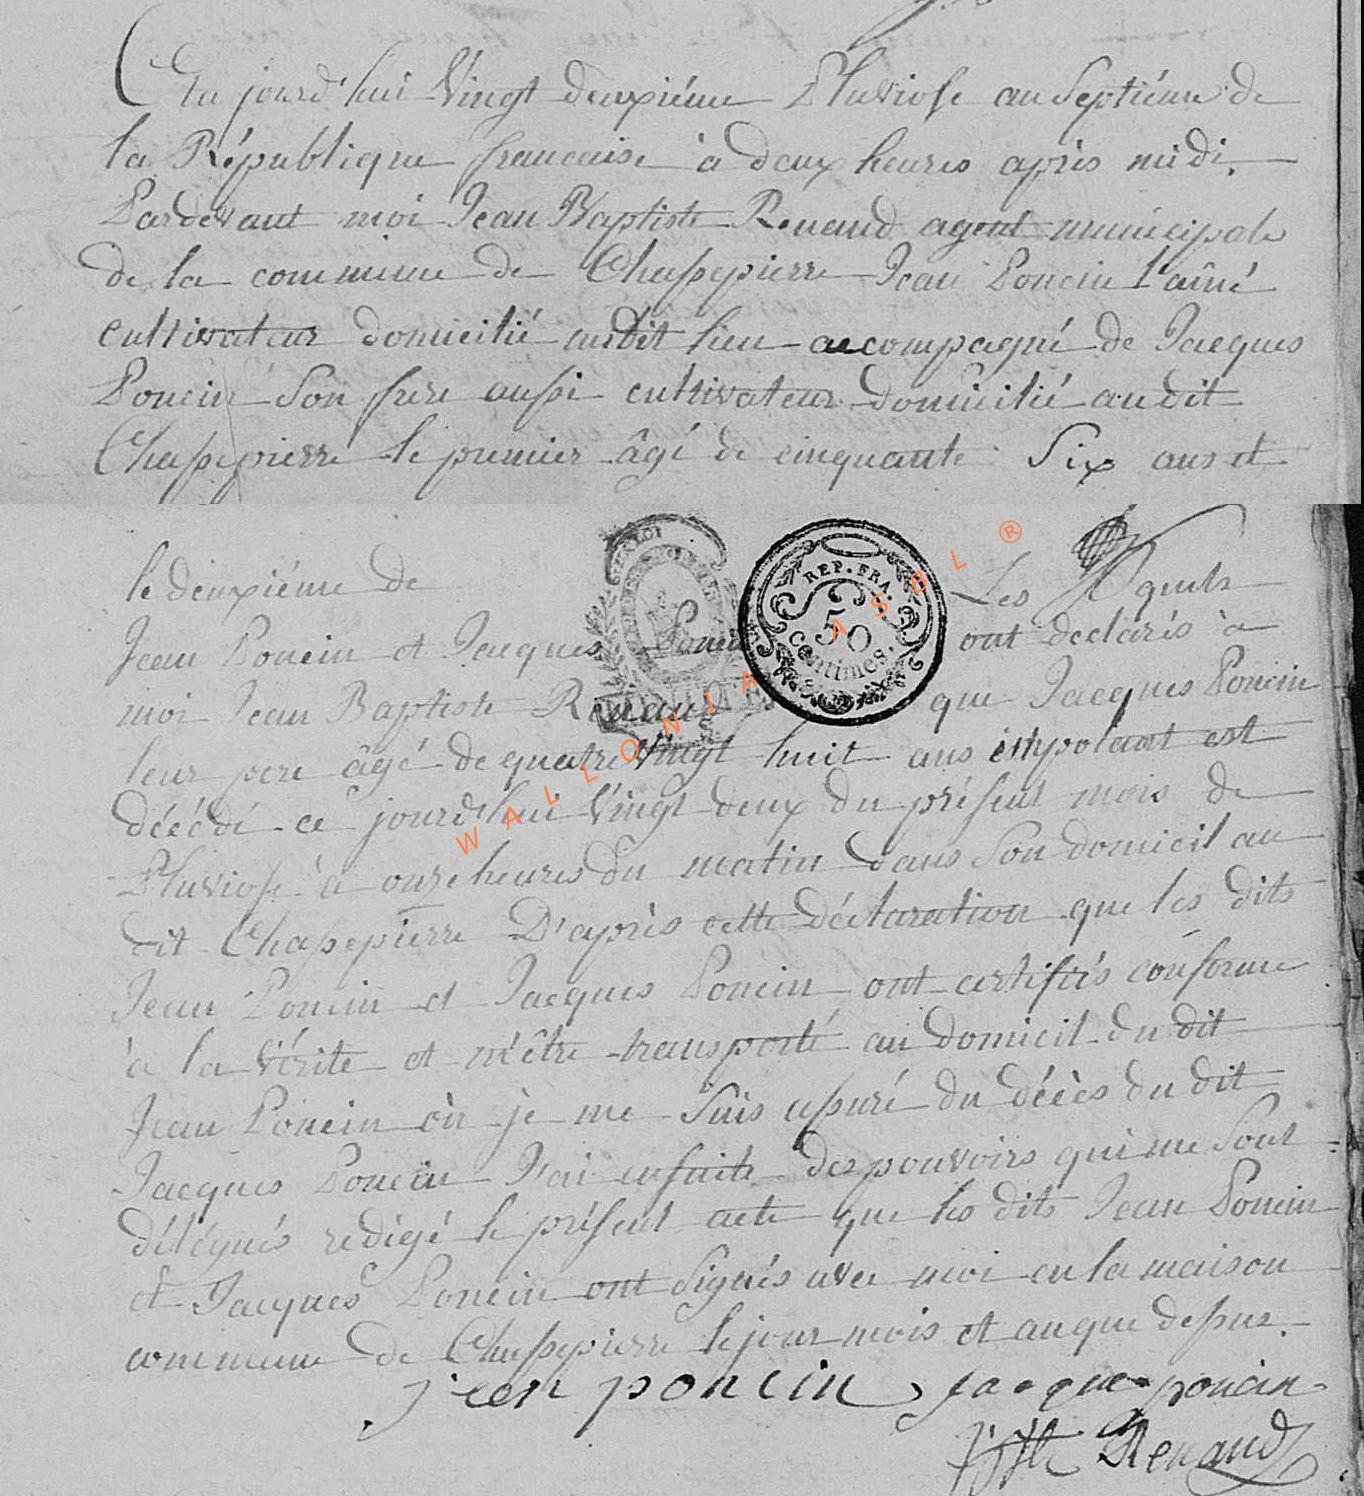 Cejourd'hui Vingt deuxiéme Pluviose an Septiéme de
la République francaise à deux heures après midi.
Pardevant moi Jean Baptiste Renaud agent municipale
de la commune de Chassepierre Jean Poncin l'aîné
cultivateur domicilié audit lieu accompagné de Jacques
Poncin Son frere aussi cultivateur domicilié audit
Chassepierre le premier âgé de cinquante Six ans et
le deuxiéme de Les quels
Jean Poncin et Jacques Poncin ont declarés à
moi Jean Baptiste Renaud que Jacques Poncin
leur pere âgé de quatre Vingt huit ans impotant est
décédé ce jourd'hui Vingt deux du présent mois de
Pluviose à onze heures du matin dans Son domicil au
dit Chassepierre D'après cette déclaration que les dits
Jean Poncin et Jacques Poncin ont certifiés conforme
à la Vérite et m'être transporté au domicil du dit
Jean Poncin où je me Suis assuré du décès du dit
Jacques Poncin J'ai ensuite des pouvoirs qui me Sont
délégués redigé le présent acte que les dits Jean Poncin
et Jacques Poncin ont Signés avec moi en la maison
commune de Chassepierre le jour mois et an que dessus.
jean poncin jacque poncin
Renaud
REP. FRA.
50
centimes.
WALLONIA ASBL ®